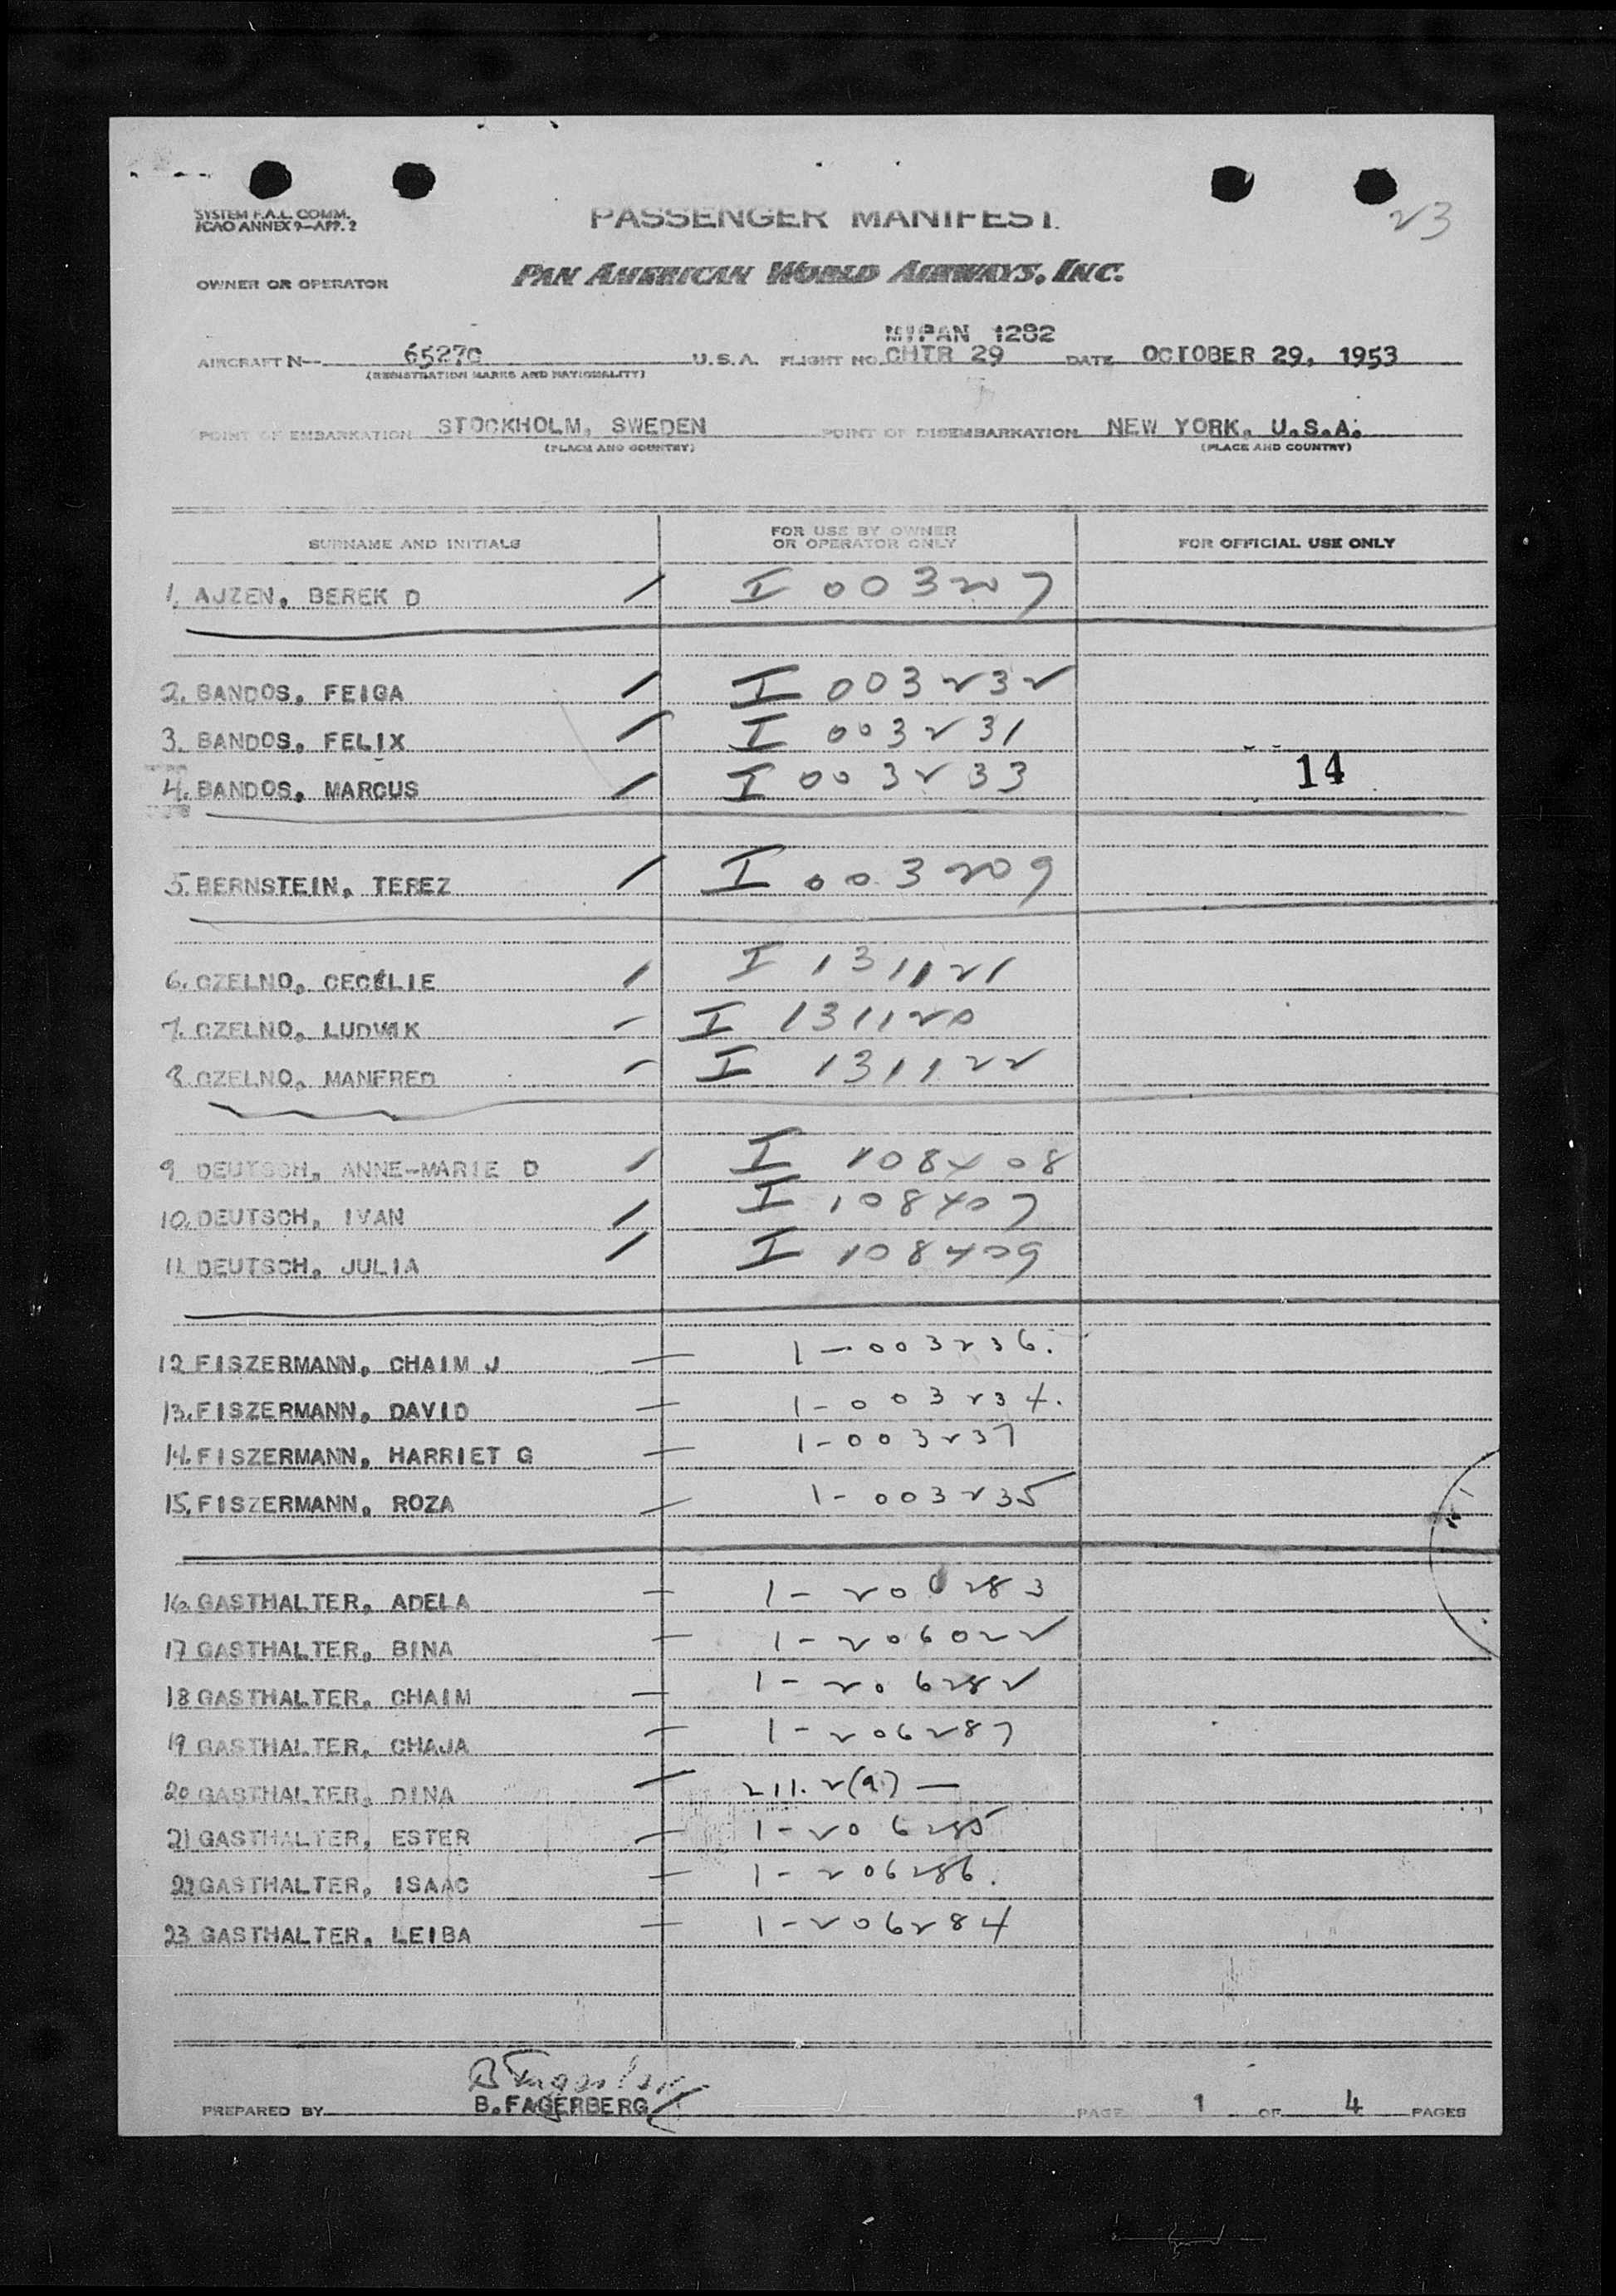 SYSTEM F.A.L. COMM.
ICAO ANNEX 9—APP. 2
PASSENGER MANIFEST
23
OWNER OR OPERATOR PAN AMERICAN WORLD AIRWAYS, INC.
MIPAN 1282
AIRCRAFT N-- 6527C U.S.A. FLIGHT NO. CHTR 29 DATE OCTOBER 29, 1953
(REGISTRATION MARKS AND NATIONALITY)
POINT OF EMBARKATION STOCKHOLM, SWEDEN POINT OF DISEMBARKATION NEW YORK, U.S.A.
(PLACE AND COUNTRY) (PLACE AND COUNTRY)
SURNAME AND INITIALS FOR USE BY OWNER OR OPERATOR ONLY FOR OFFICIAL USE ONLY
1. AJZEN, BEREK D / I 003207
2. BANDOS, FEIGA / I 003232
3. BANDOS, FELIX / I 003231
4. BANDOS, MARCUS / I 003233 14
5. BERNSTEIN, TEREZ / I 003209
6. CZELNO, CECILIE / I 131121
7. CZELNO, LUDWIK – I 131120
8. CZELNO, MANFRED – I 131122
9 DEUTSCH, ANNE-MARIE D / I 108408
10. DEUTSCH, IVAN / I 108407
11. DEUTSCH, JULIA / I 108409
12 FISZERMANN, CHAIM J — 1-003236.
13. FISZERMANN, DAVID — 1-003234.
14. FISZERMANN, HARRIET G — 1-003237
15. FISZERMANN, ROZA — 1-003235
16. GASTHALTER, ADELA — 1-206283
17 GASTHALTER, BINA — 1-206022
18 GASTHALTER, CHAIM — 1-206282
19 GASTHALTER, CHAJA — 1-206287
20 GASTHALTER, DINA — 211.2(a) —
21 GASTHALTER, ESTER — 1-206285
22 GASTHALTER, ISAAC — 1-206286.
23 GASTHALTER, LEIBA — 1-206284
B Fagerberg
PREPARED BY B. FAGERBERG PAGE 1 OF 4 PAGES